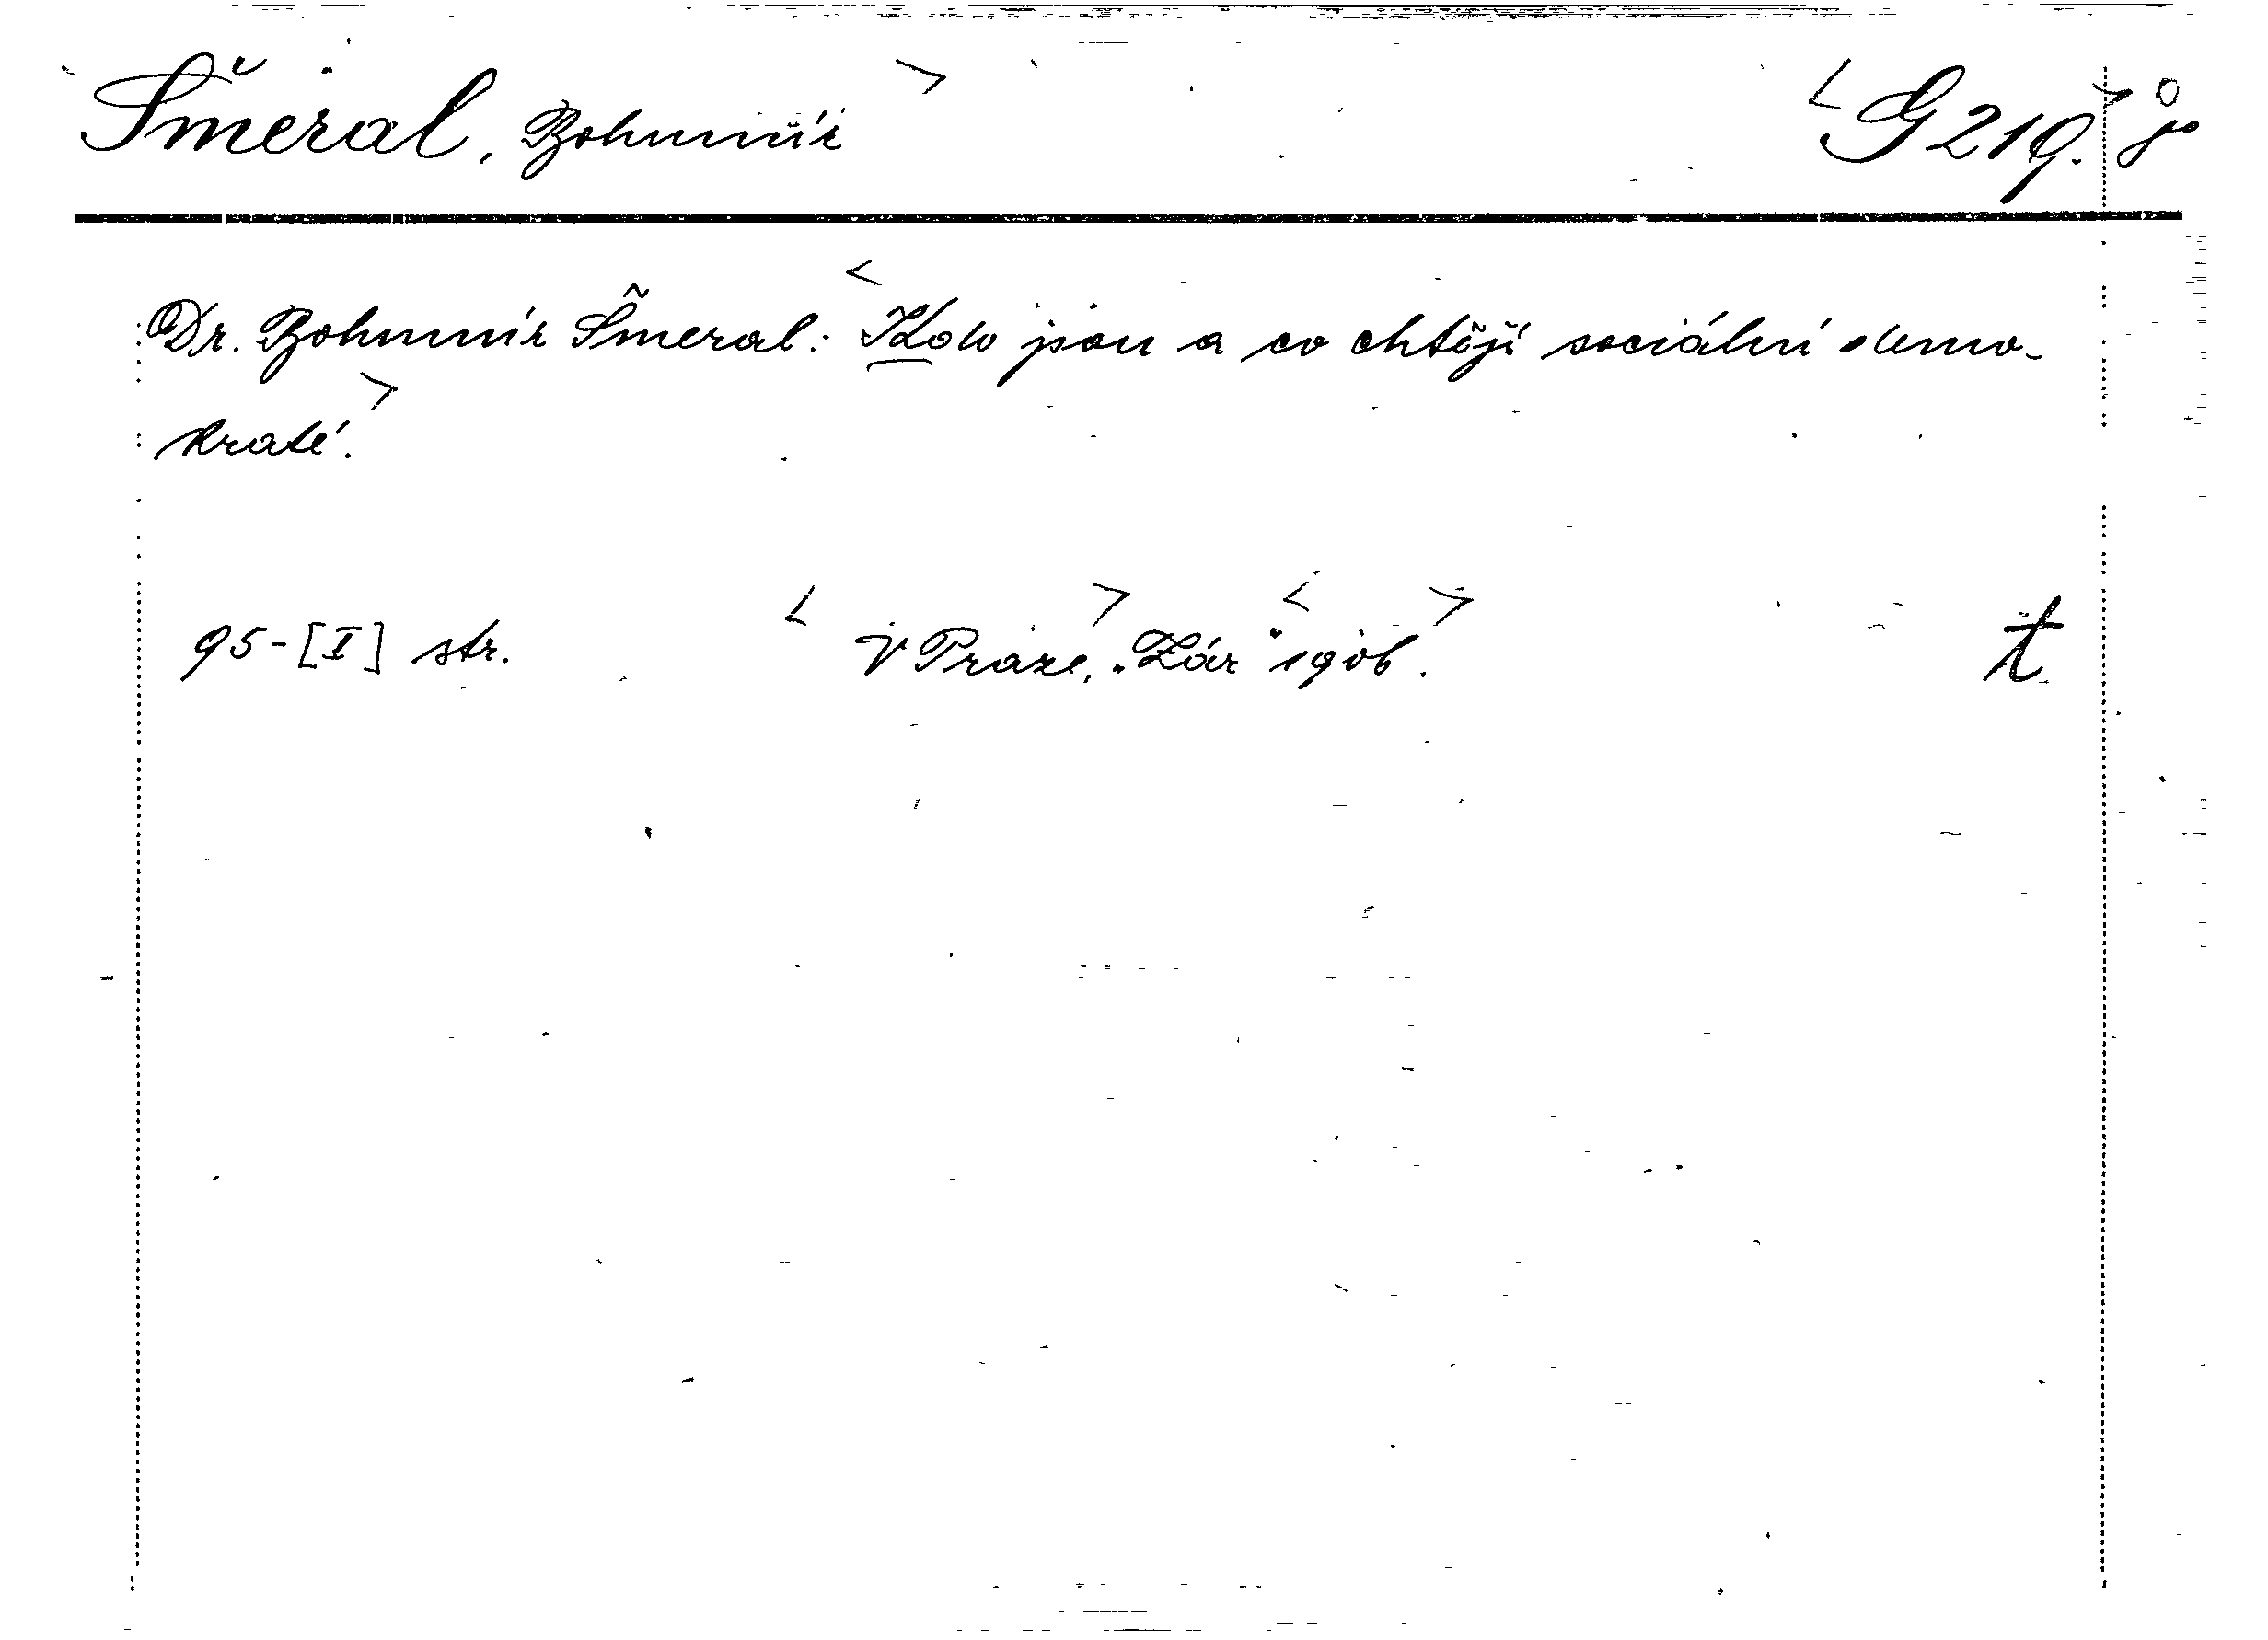 Šmeral, Bohumír G 219. 8°
Dr. Bohumír Šmeral: Kdo jsou a co chtějí sociální demo-
kraté.
95-[I] str. V Praze, „Zář" 1906. t